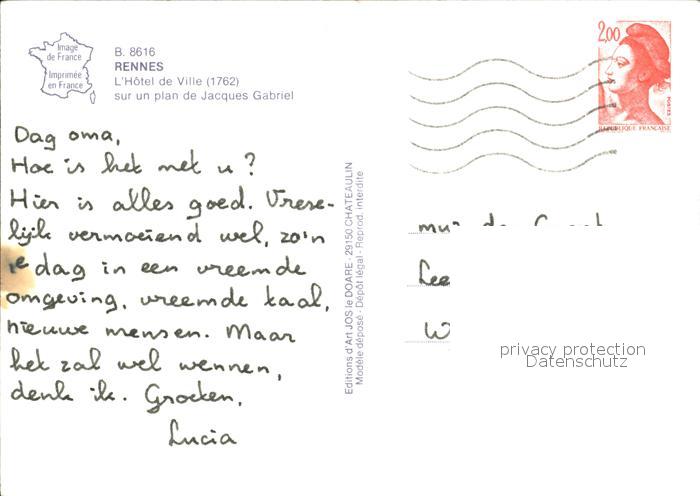 Image
de France
Imprimée
en France
B. 8616
RENNES
L'Hôtel de Ville (1762)
sur un plan de Jacques Gabriel
2,00
POSTES
REPUBLIQUE FRANÇAISE
Dag oma,
Hoe is het met u?
Hier is alles goed. Vrese-
lijk vermoeiend wel, zo'n
1e dag in een vreemde
omgeving, vreemde taal,
nieuwe mensen. Maar
het zal wel wennen,
denk ik. Groeten,
Lucia
Editions d'Art JOS le DOARE - 29150 CHATEAULIN
Modèle déposé - Dépôt légal - Reprod. interdite
privacy protection
Datenschutz